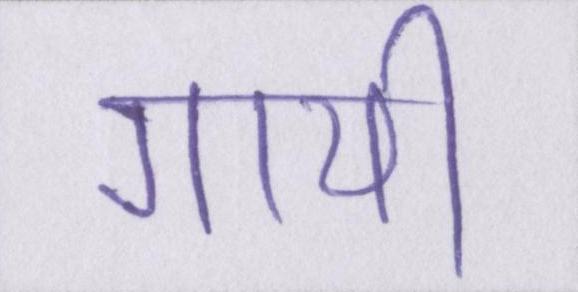 गायी